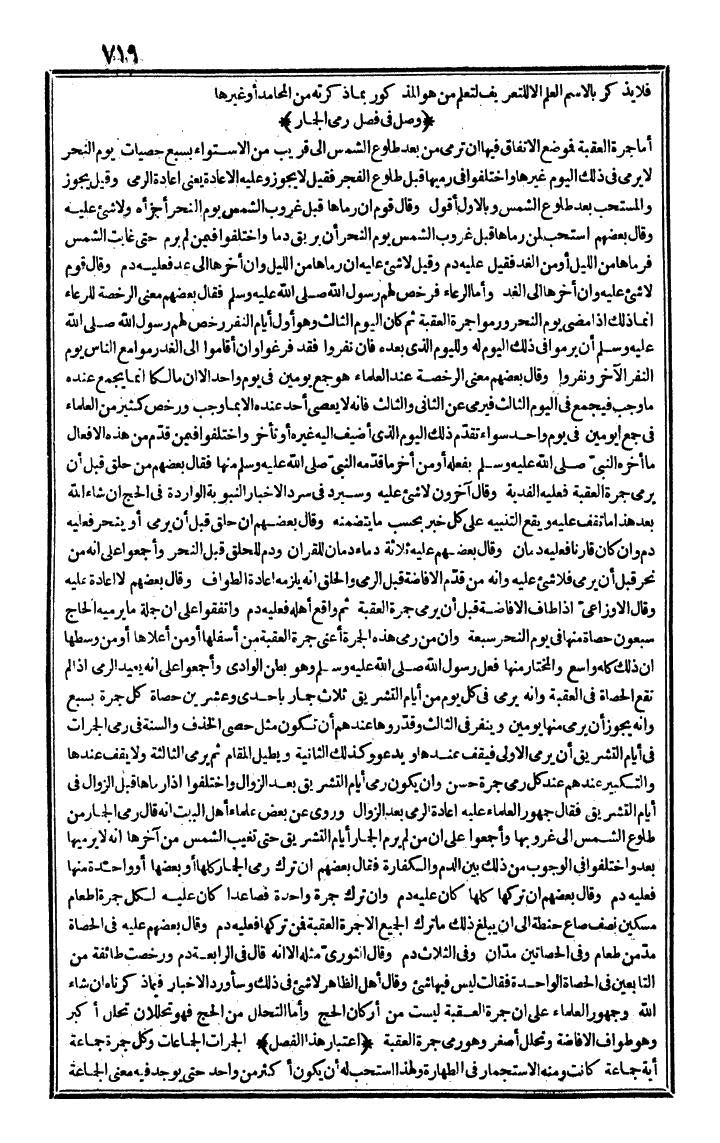 ٧١٩
فلا يذكر بالاسم العلم الا للتعريف لتعلم من هو المذكور بما ذكرته من المحامد أو غيرها
﴿وصل فى فصل رمى الجمار﴾
أما جمرة العقبة فوضع الاتفاق فيها ان ترمى من بعد طلوع الشمس الى قريب من الاستواء بسبع حصيات يوم النحر
لا يرمى فى ذلك اليوم غيرها واختلفوا فى رميها قبل طلوع الفجر فقيل لا يجوز وعليه الاعادة يعنى اعادة الرمى وقيل يجوز
والمستحب بعد طلوع الشمس وبالاول أقول وقال قوم ان رماها قبل غروب الشمس يوم النحر أجزأه ولا شئ عليه
وقال بعضهم استحب لمن رماها قبل غروب الشمس يوم النحر أن يريق دما واختلفوا فيمن لم يرم حتى غابت الشمس
فرماها من الليل أو من الغد فقيل عليه دم وقيل لا شئ عليه ان رماها من الليل وان أخرها الى غد فعليه دم وقال قوم
لا شئ عليه وان أخرها الى الغد وأما الرعاء فرخص لهم رسول الله صلى الله عليه وسلم فقال بعضهم معنى الرخصة للرعاء
انما ذلك اذا مضى يوم النحر ورموا جمرة العقبة ثم كان اليوم الثالث وهو أول أيام النفر رخص لهم رسول الله صلى الله
عليه وسلم أن يرموا فى ذلك اليوم له ولليوم الذى بعده فان نفروا فقد فرغوا وان أقاموا الى الغد رموا مع الناس يوم
النفر الآخر ونفروا وقال بعضهم معنى الرخصة عند العلماء هو جمع يومين فى يوم واحد الا ان مالكا انما يجمع عنده
ما وجب فيجمع فى اليوم الثالث فيرمى عن الثانى والثالث فانه لا يعصى أحد عنده الا بما وجب ورخص كثير من العلماء
فى جمع يومين فى يوم واحد سواء تقدم ذلك اليوم الذى أضيف اليه غيره أو تأخر واختلفوا فيمن قدم من هذه الافعال
ما أخره النبىّ صلى الله عليه وسلم بفعله أو من أخر ما قدمه النبىّ صلى الله عليه وسلم منها فقال بعضهم من حلق قبل أن
يرمى جمرة العقبة فعليه الفدية وقال آخرون لا شئ عليه وسيرد فى سرد الاخبار النبوية الواردة فى الحج ان شاء الله
بعد هذا ما تقف عليه ويقع التنبيه على كل خبر بحسب ما يتضمنه وقال بعضهم ان حلق قبل أن يرمى أو ينحر فعليه
دم وان كان قارنا فعليه دمان وقال بعضهم عليه ثلاثة دماء دمان للقران ودم للحلق قبل النحر وأجمعوا على انه من
نحر قبل أن يرمى فلا شئ عليه وانه من قدّم الافاضة قبل الرمى والحلق انه يلزمه اعادة الطواف وقال بعضهم لا اعادة عليه
وقال الاوزاعىّ اذا طاف الافاضة قبل أن يرمى جمرة العقبة ثم واقع أهله فعليه دم واتفقوا على ان جملة ما يرميه الحاج
سبعون حصاة منها فى يوم النحر سبعة وان من رمى هذه الجمرة أعنى جمرة العقبة من أسفلها أو من أعلاها أو من وسطها
ان ذلك كله واسع والمختار منها فعل رسول الله صلى الله عليه وسلم وهو بطن الوادى وأجمعوا على انه يعيد الرمى اذا لم
تقع الحصاة فى العقبة وانه يرمى فى كل يوم من أيام التشريق ثلاث جمار باحدى وعشرين حصاة كل جمرة بسبع
وانه يجوز أن يرمى منها يومين وينفر فى الثالث وقدروها عندهم أن تكون مثل حصى الخذف والسنة فى رمى الجمرات
فى أيام التشريق أن يرمى الاولى فيقف عندها ويدعو وكذلك الثانية ويطيل المقام ثم يرمى الثالثة ولا يقف عندها
والتكبير عندهم عند كل رمى جمرة حسن وان يكون رمى أيام التشريق بعد الزوال واختلفوا اذا رماها قبل الزوال فى
أيام التشريق فقال جمهور العلماء عليه اعادة الرمى بعد الزوال وروى عن بعض علماء أهل البيت انه قال رمى الجمار من
طلوع الشمس الى غروبها وأجمعوا على ان من لم يرم الجمار أيام التشريق حتى تغيب الشمس من آخرها انه لا يرميها
بعد واختلفوا فى الوجوب من ذلك بين الدم والكفارة فقال بعضهم ان ترك رمى الجمار كلها أو بعضها أو واحدة منها
فعليه دم وقال بعضهم ان تركها كلها كان عليه دم وان ترك جمرة واحدة فصاعدا كان عليه لكل جمرة اطعام
مسكين نصف صاع حنطة الى ان يبلغ ذلك ما ترك الجميع الا جمرة العقبة فمن تركها فعليه دم وقال بعضهم عليه فى الحصاة
مدّ من طعام وفى الحصاتين مدّان وفى الثلاث دم وقال الثورىّ مثله الا انه قال فى الرابعة دم ورخصت طائفة من
التابعين فى الحصاة الواحدة فقالت ليس فيها شئ وقال أهل الظاهر لا شئ فى ذلك وسأورد الاخبار فيما ذكرناه ان شاء
الله وجمهور العلماء على ان جمرة العقبة ليست من أركان الحج وأما التحلل من الحج فهو تحللان تحلل أكبر
وهو طواف الافاضة وتحلل أصغر وهو رمى جمرة العقبة ﴿اعتبار هذا الفصل﴾ الجمرات الجماعات وكل جمرة جماعة
أية جماعة كانت ومنه الاستجمار فى الطهارة ولهذا استحب له أن يكون أكثر من واحد حتى يوجد فيه معنى الجماعة